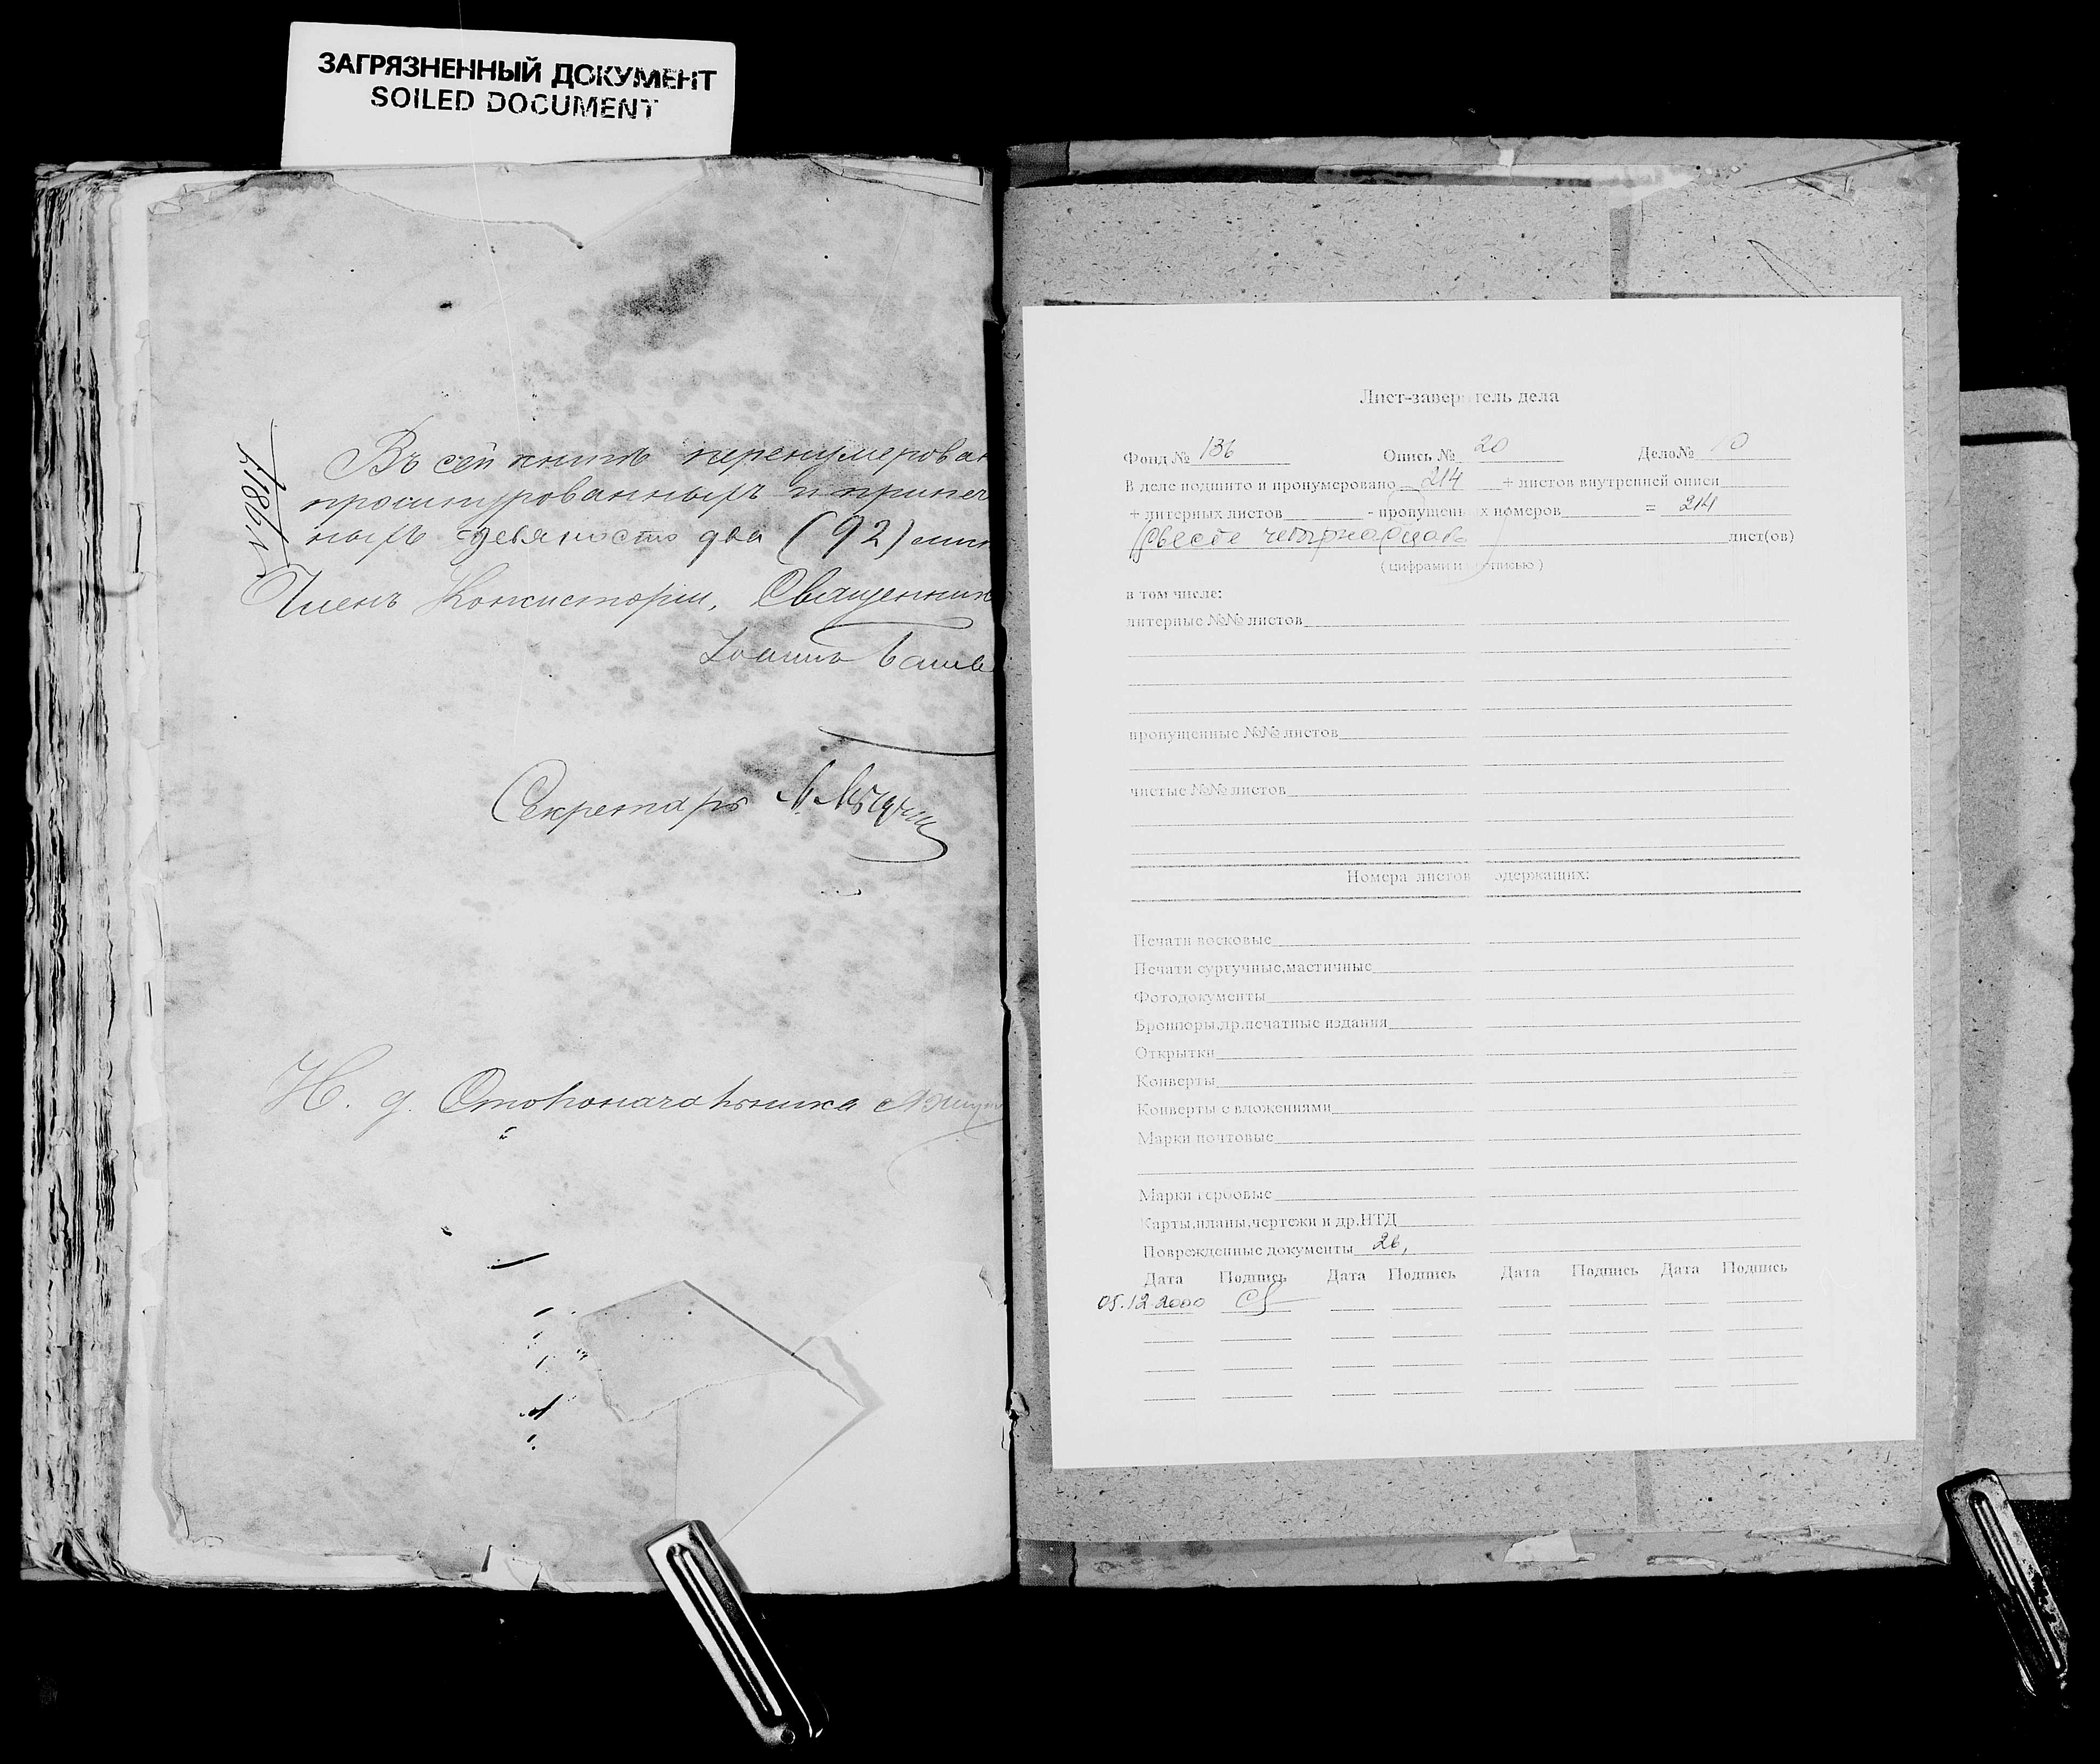 ЗАГРЯЗНЕННЫЙ ДОКУМЕНТ
SOILED DOCUMENT
Въ сей книгѣ перенумерован
прошнурованныхъ и припеч
ныхъ девяносто два (92) лист
Членъ Консисторіи, Священник
Іоаннъ
Секретарь
Н. д. Столоначальника
Лист-заверитель дела
Фонд № 136 Опись № 20 Дело№ 10
В деле подшито и пронумеровано 214 + листов внутренней описи
+ литерных листов - пропущенных номеров = 214
Двести четырнадцать лист(ов)
( цифрами и прописью )
в том числе:
литерные №№ листов
пропущенные №№ листов
чистые №№ листов
Номера листов содержащих:
Печати восковые
Печати сургучные,мастичные
Фотодокументы
Брошюры,др.печатные издания
Открытки
Конверты
Конверты с вложениями
Марки почтовые
Марки гербовые
Карты,планы,чертежи и др.НТД
Поврежденные документы 26,
Дата Подпись Дата Подпись Дата Подпись Дата Подпись
05.12.2000